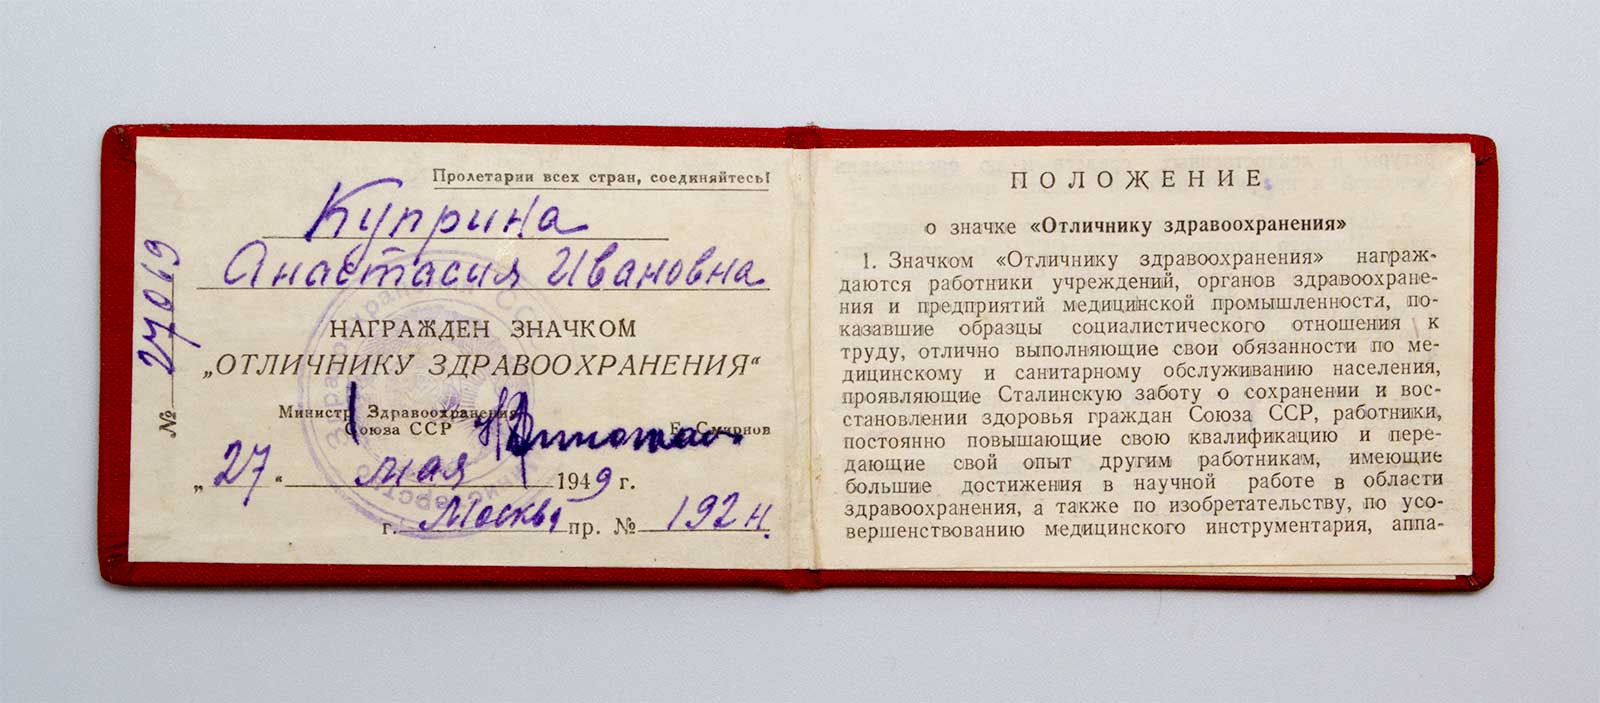 Пролетарии всех стран, соединяйтесь!
Куприна
Анастасия Ивановна
НАГРАЖДЕН ЗНАЧКОМ
„ОТЛИЧНИКУ ЗДРАВООХРАНЕНИЯ“
Министр Здравоохранения
Союза ССР Е. Смирнов
„27“ мая 1949 г.
г. Москва пр. № 192 н.
№ 27069
ПОЛОЖЕНИЕ
о значке «Отличнику здравоохранения»
1. Значком «Отличнику здравоохранения» награж-
даются работники учреждений, органов здравоохране-
ния и предприятий медицинской промышленности, по-
казавшие образцы социалистического отношения к
труду, отлично выполняющие свои обязанности по ме-
дицинскому и санитарному обслуживанию населения,
проявляющие Сталинскую заботу о сохранении и вос-
становлении здоровья граждан Союза ССР, работники,
постоянно повышающие свою квалификацию и пере-
дающие свой опыт другим работникам, имеющие
большие достижения в научной работе в области
здравоохранения, а также по изобретательству, по усо-
вершенствованию медицинского инструментария, аппа-